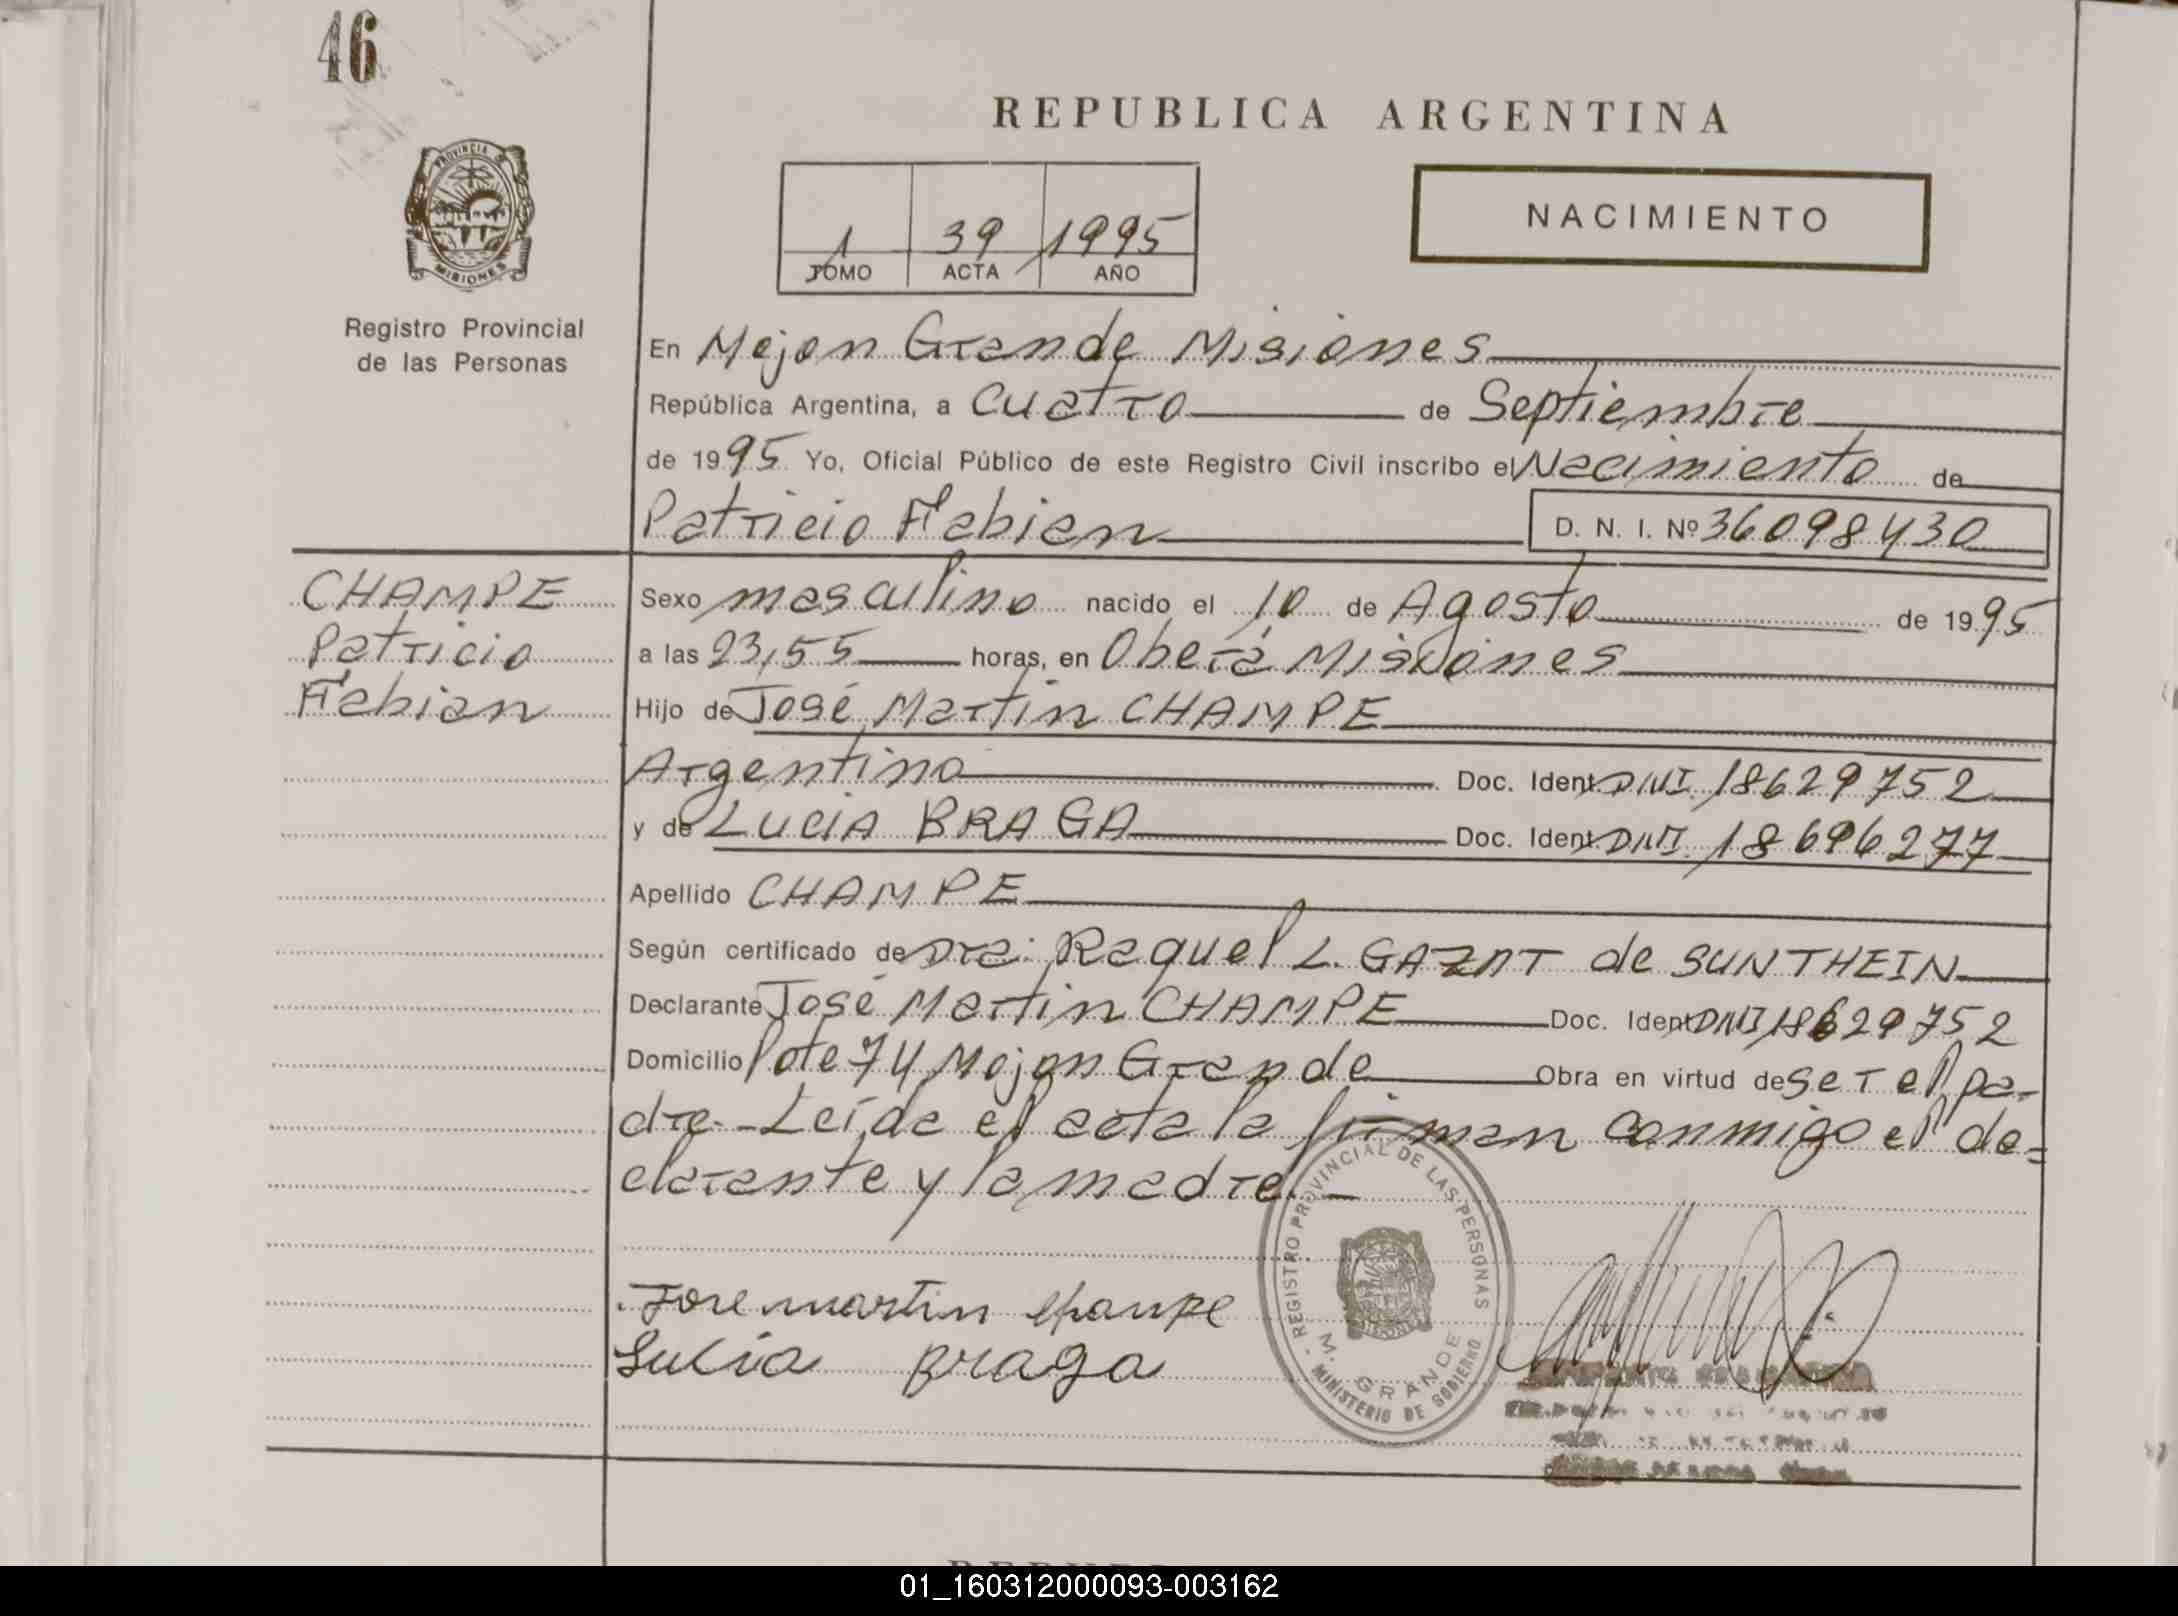 46
REPUBLICA ARGENTINA
PROVINCIA DE
MISIONES
NACIMIENTO
1 39 1995
TOMO ACTA AÑO
Registro Provincial
de las Personas
En Mojon Grande Misiones
República Argentina, a Cuatro de Septiembre
de 1995 Yo, Oficial Público de este Registro Civil inscribo el Nacimiento de
Patricio Fabian D. N. I. Nº 36098430
CHAMPE
Patricio
Fabian
Sexo masculino nacido el 10 de Agosto de 1995
a las 23,55 horas, en Oberá Misiones
Hijo de José Martin CHAMPE
Argentino Doc. Ident. DNI. 18629752
y de LUCIA BRAGA Doc. Ident. DNI. 18696277
Apellido CHAMPE
Según certificado de Dra. Raquel L. de SUNTHEIN
Declarante José Martin CHAMPE Doc. Ident. DNI 18629752
Domicilio lote 74 Mojon Grande Obra en virtud de ser el pa-
dre.- Leida el acta la firman conmigo el de=
clarante y la madre.-
Jose martin champe
Lucia Braga
REGISTRO PROVINCIAL DE LAS PERSONAS
M. GRANDE
MINISTERIO DE GOBIERNO
01_160312000093-003162